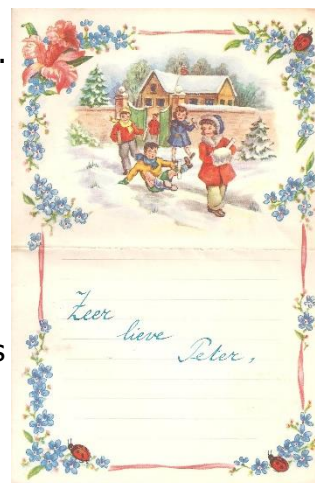 .
Zeer
lieve
Peter,
s